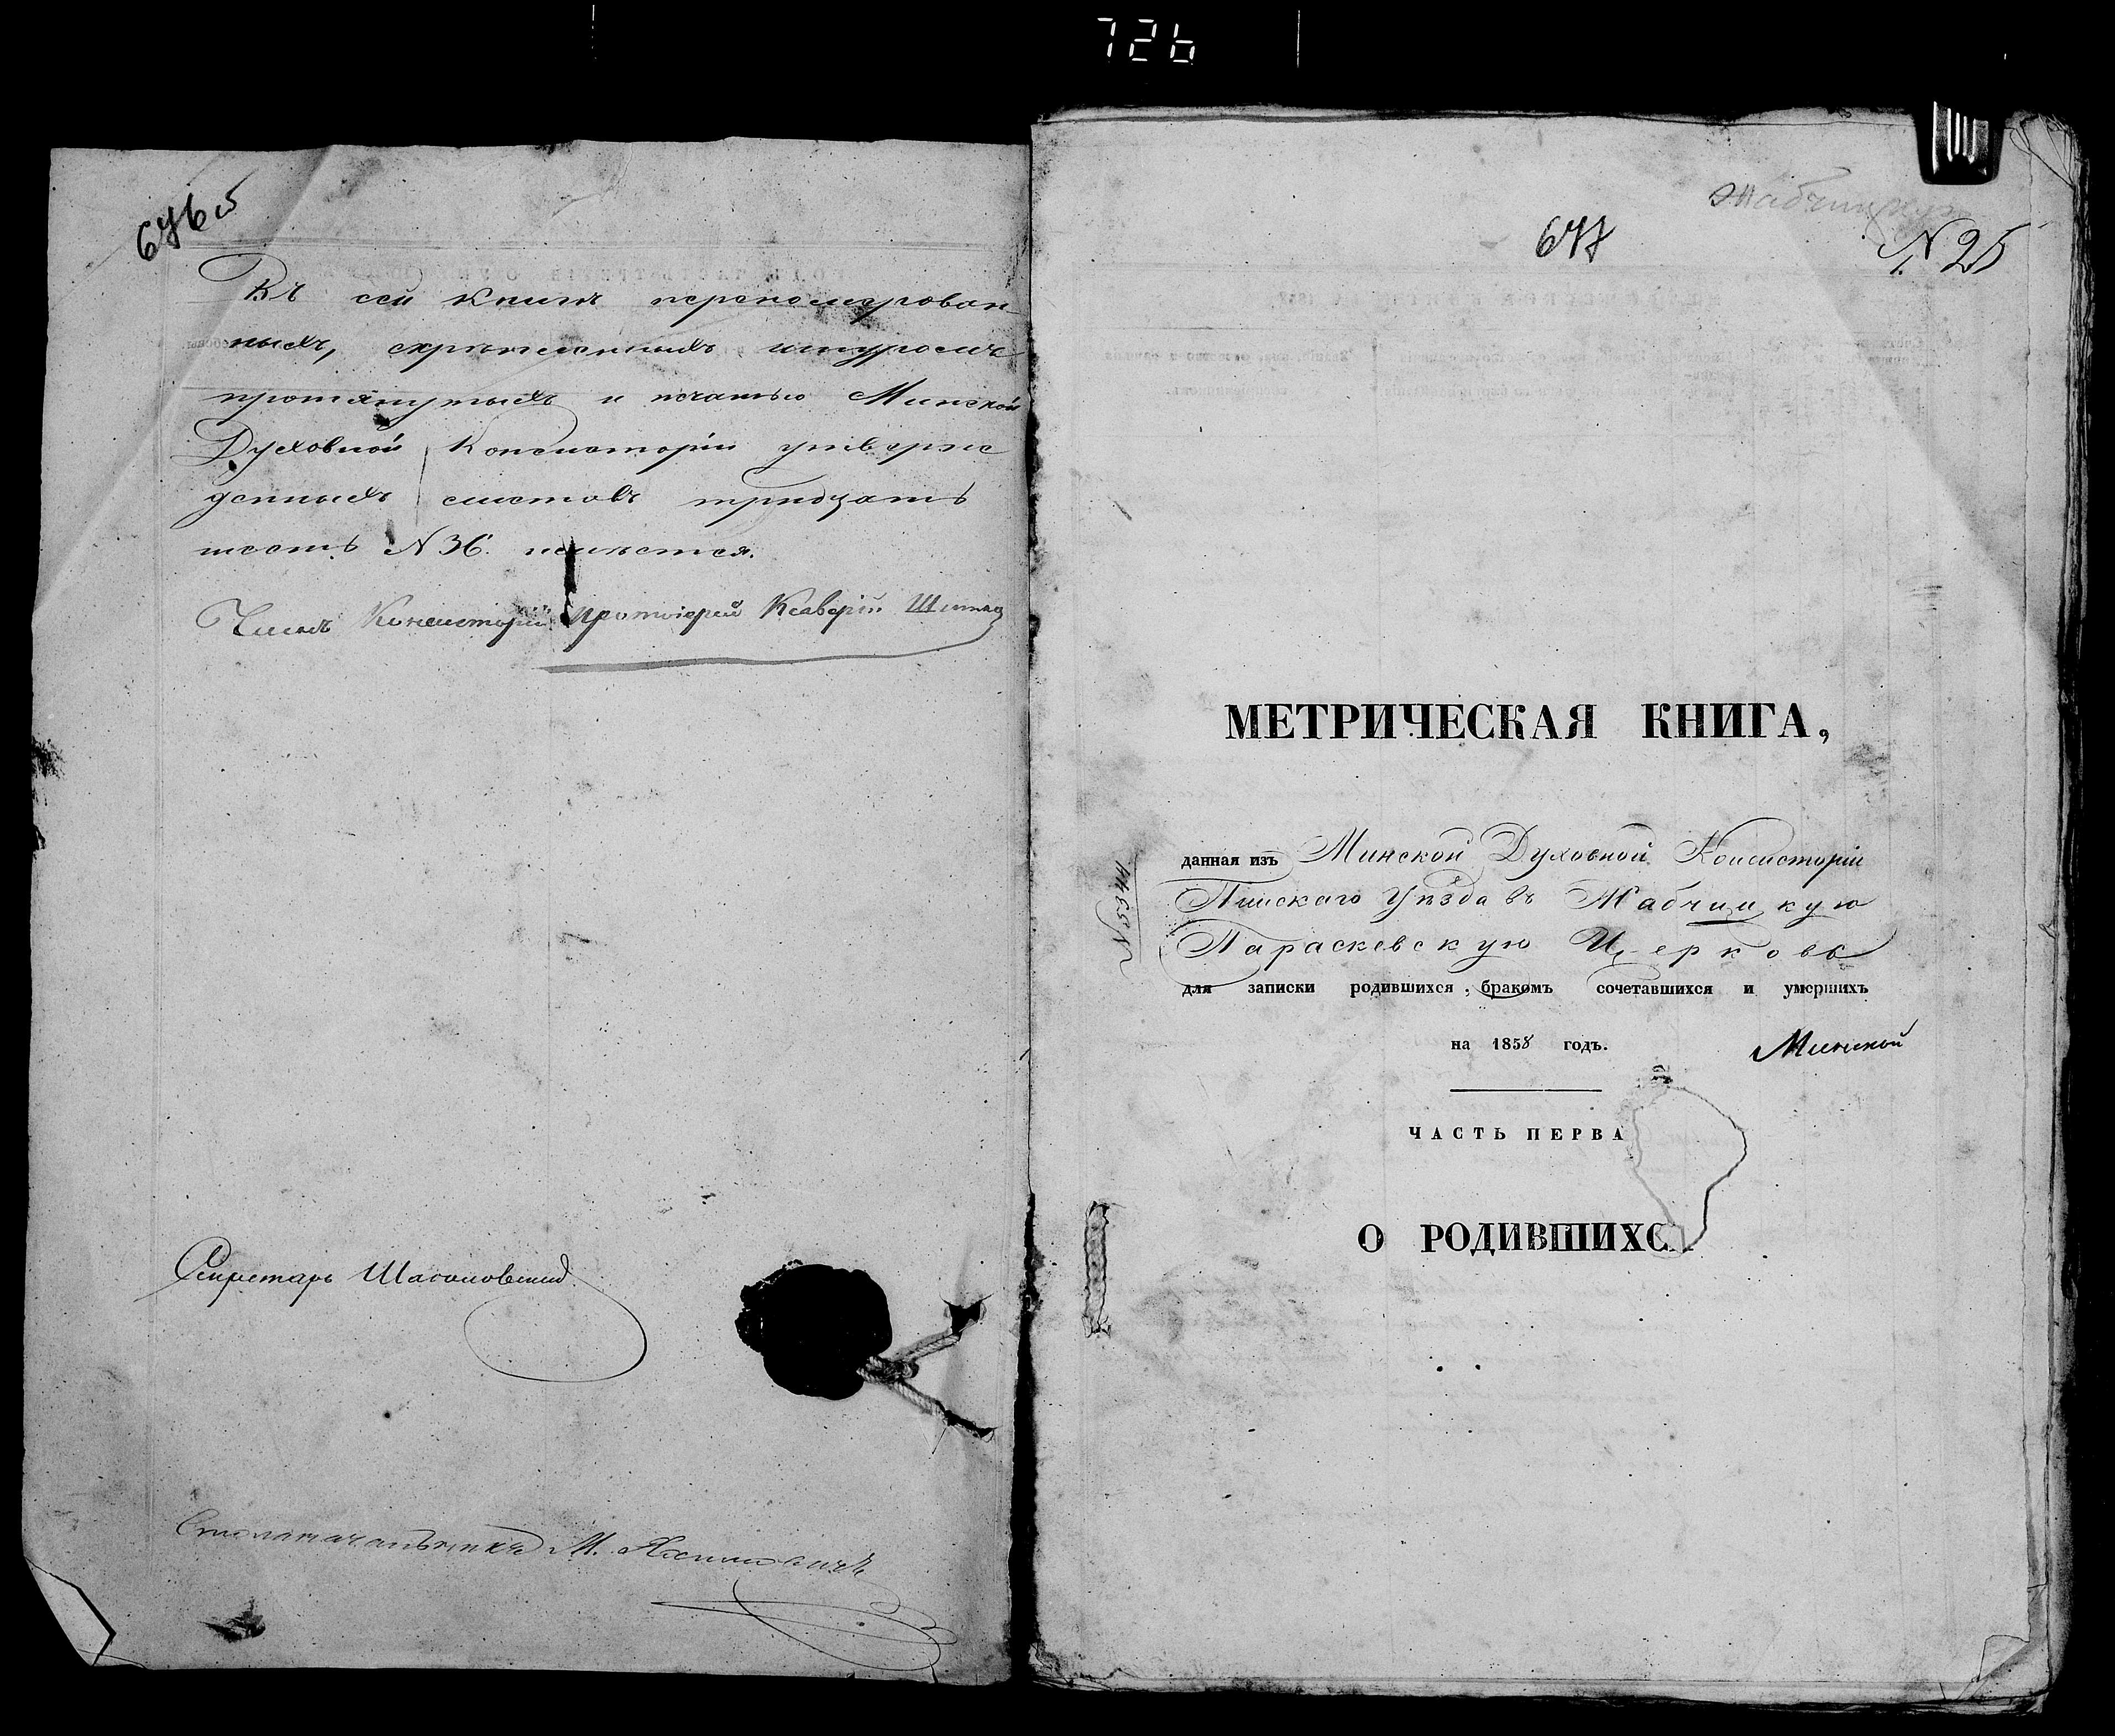 726
676 об
Въ сей книгѣ перенумерован-
ныхъ, скрѣпленныхъ шнуромъ
протянутыхъ и печатью Минской
Духовной Консисторіи утверж
денныхъ листовъ тридцать
шесть № 36. имѣется.
Членъ Консисторіи Протоіерей Ксаверій
Секретарь
Столоначальникъ М.
677
№ 25
МЕТРИЧЕСКАЯ КНИГА,
данная изъ Минской Духовной Консисторіи
Пинскаго Уѣзда въ Жабчицкую
Параскевскую Церковь
для записки родившихся, бракомъ сочетавшихся и умершихъ
на 1858 годъ.
Минской
ЧАСТЬ ПЕРВА
О РОДИВШИХС